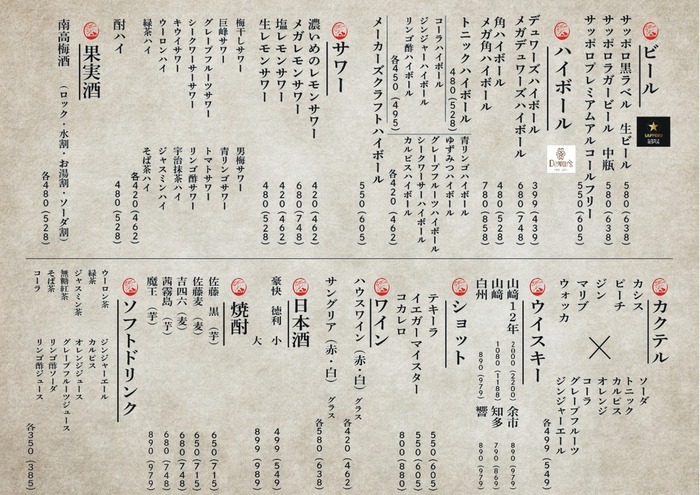 ビール
サッポロ黒ラベル 生ビール 580(638)
サッポロラガービール 中瓶 580(638)
サッポロプレミアムアルコールフリー 550(605)
ハイボール
デュワーズハイボール 399(439)
メガデュワーズハイボール 680(748)
角ハイボール 480(528)
メガ角ハイボール 780(858)
トニックハイボール 480(528)
コーラハイボール
ジンジャーハイボール
リンゴ酢ハイボール
各450(495)
青リンゴハイボール
ゆずみつハイボール
グレープフルーツハイボール
シークワーサーハイボール
カルピスハイボール
各420(462)
メーカーズクラフトハイボール 550(605)
サワー
濃いめのレモンサワー 420(462)
メガレモンサワー 680(748)
塩レモンサワー 480(528)
生レモンサワー 480(528)
梅干しサワー
巨峰サワー
グレープフルーツサワー
シークワーサーサワー
キウイサワー
ウーロンハイ
緑茶ハイ
男梅サワー
青リンゴサワー
トマトサワー
リンゴ酢サワー
宇治抹茶ハイ
ジャスミンハイ
そば茶ハイ
各420(462)
酎ハイ 480(528)
果実酒
南高梅酒 (ロック・水割・お湯割・ソーダ割) 各480(528)
カクテル
カシス
ピーチ
マリブ
ジン
ウォッカ
ソーダ
トニック
カルピス
オレンジ
コーラ
グレープフルーツ
ジンジャーエール
各499(549)
ウイスキー
山崎12年 2000(2200)
山崎 1080(1188)
白州 890(979)
余市 890(979)
知多 790(869)
響 890(979)
ショット
テキーラ 550(605)
イエガーマイスター 550(605)
コカレロ 800(880)
ワイン
ハウスワイン(赤・白) グラス 各420(462)
サングリア(赤・白) グラス 各580(638)
日本酒
豪快 徳利 小 499(549)
大 899(989)
焼酎
佐藤 黒(芋) 650(715)
佐藤麦(麦) 650(715)
吉四六(麦) 680(748)
茜霧島(芋) 680(748)
魔王(芋) 890(979)
ソフトドリンク
ウーロン茶
緑茶
ジャスミン茶
無糖紅茶
そば茶
コーラ
ジンジャーエール
カルピス
オレンジジュース
グレープフルーツジュース
リンゴ酢ソーダ
リンゴ酢ジュース
各350(385)